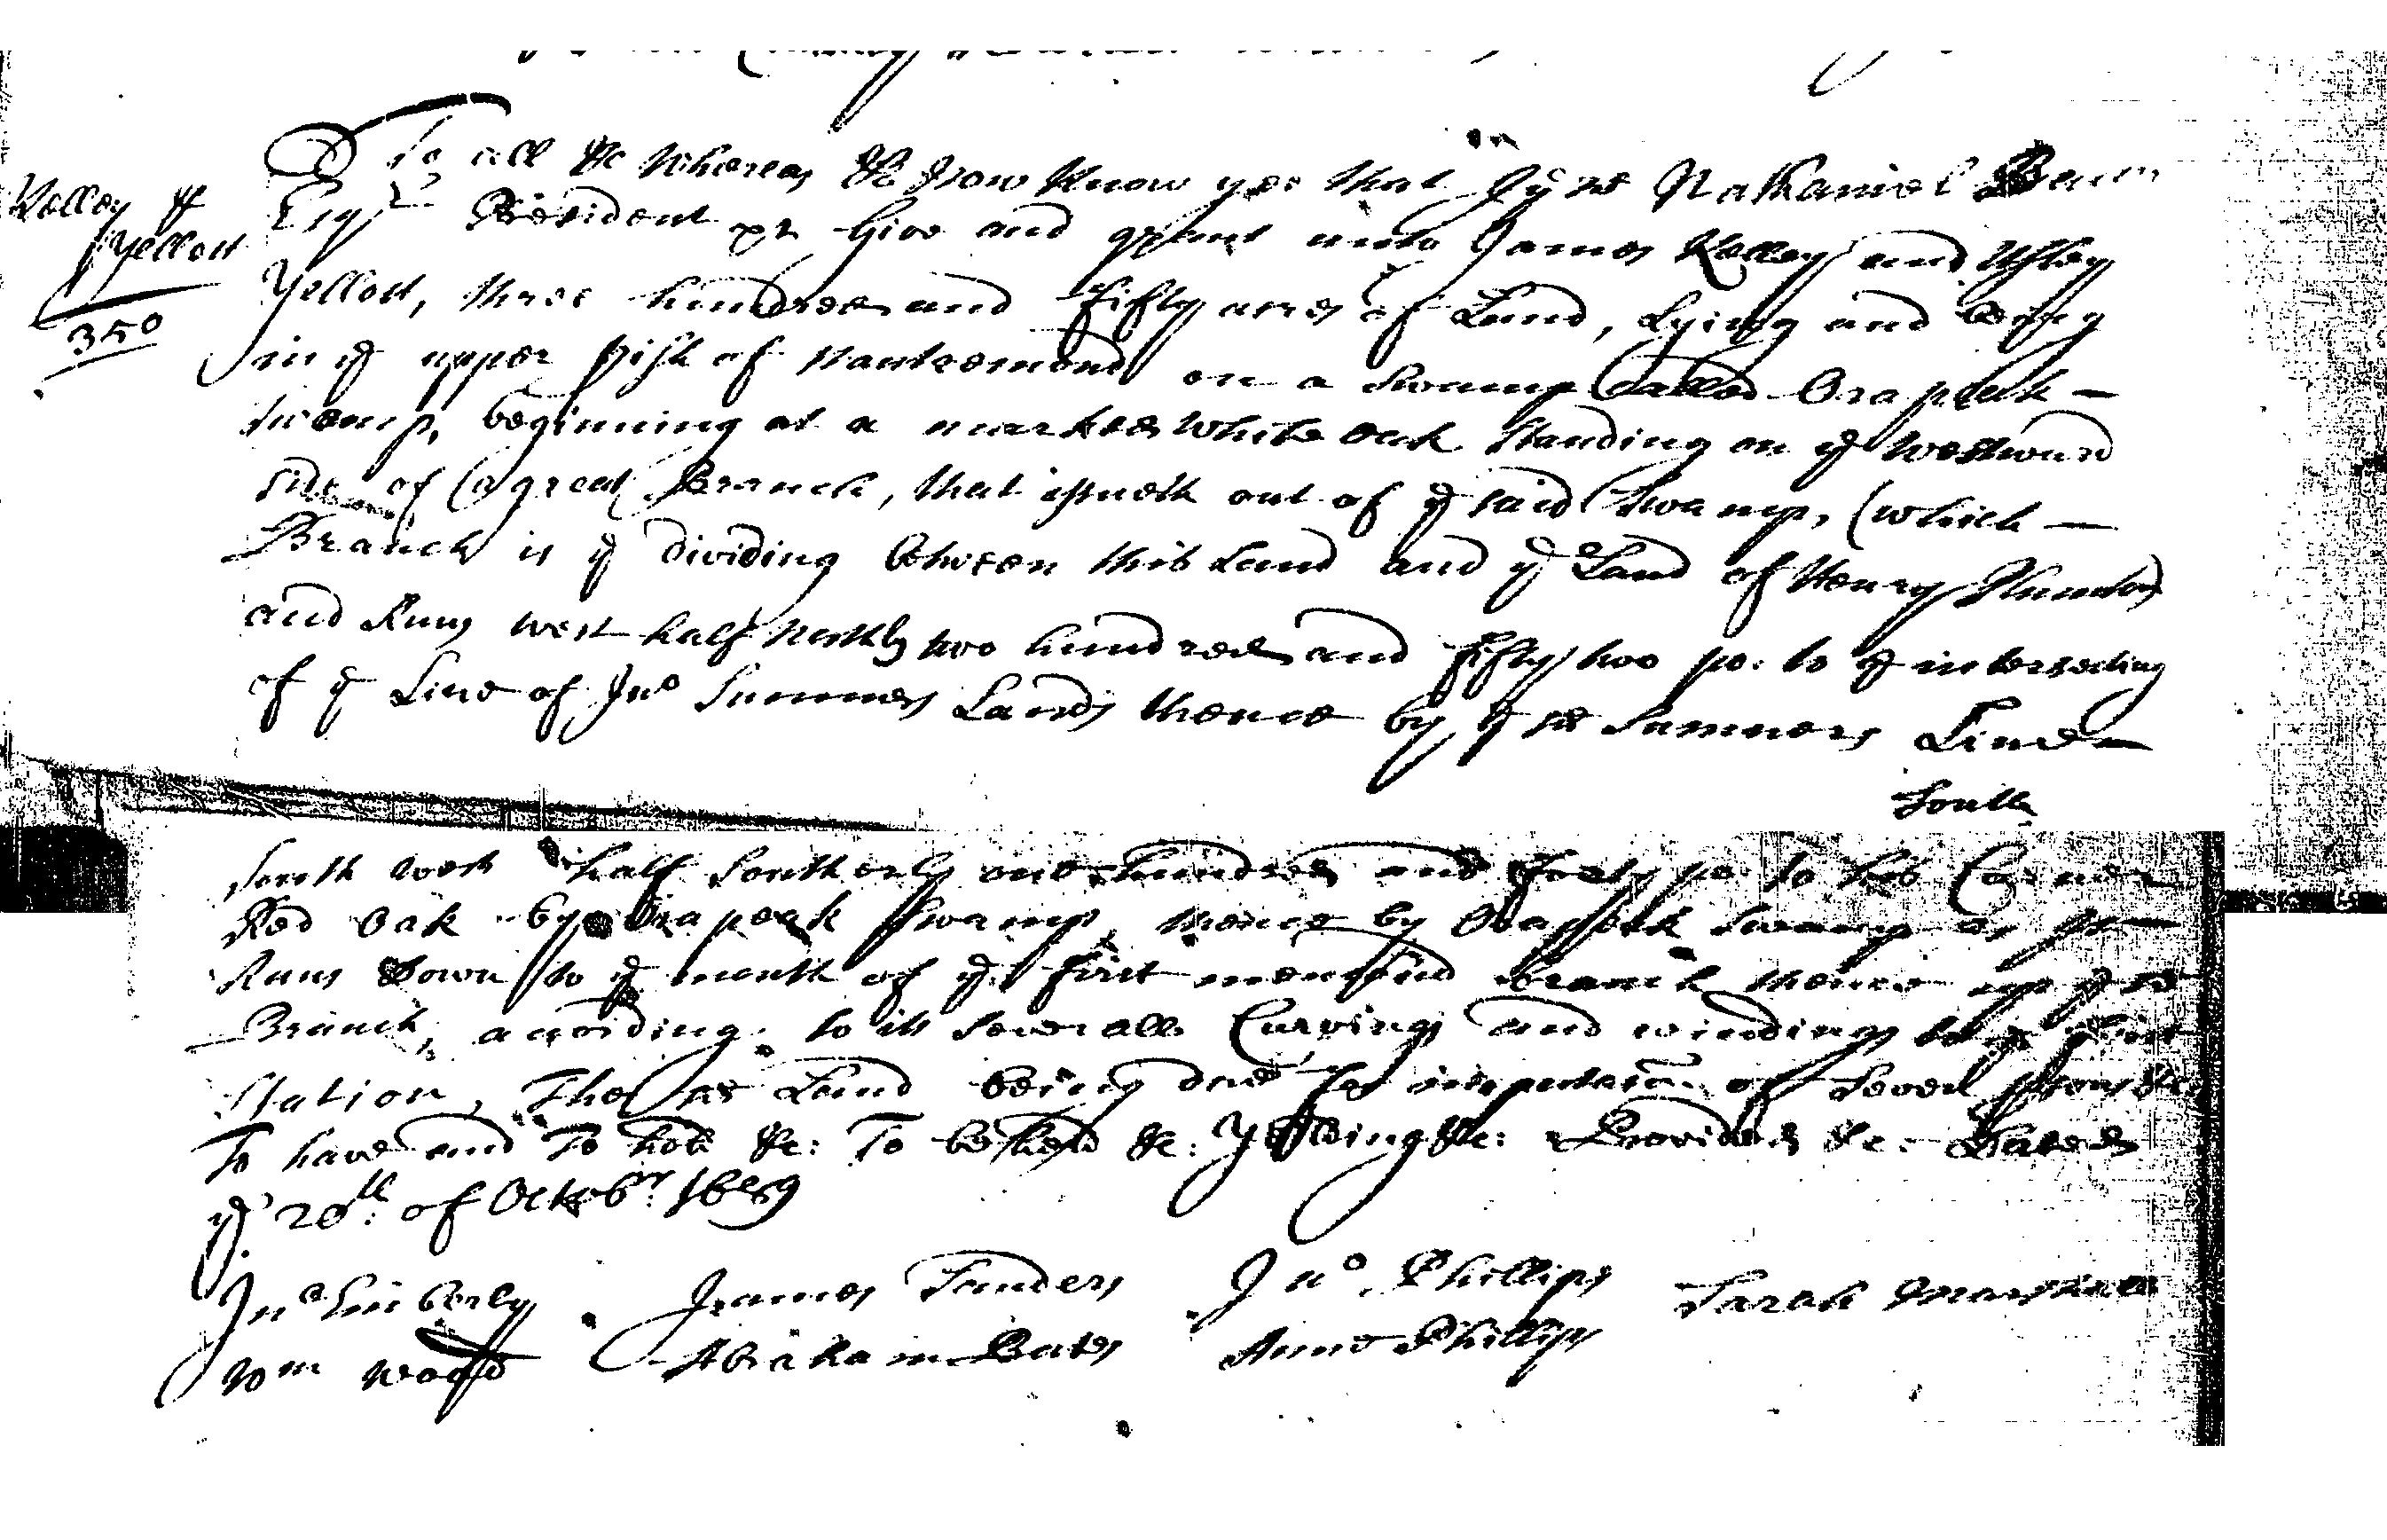 Kelley &
Yellott
350
To all &c Whereas &c Now Know yee that I ye sd Nathaniel Bacon
Esqr President &c Give and grant unto James Kelley and
Yellott, three hundred and fifty acres of Land, Lying and being
in ye upper pish of Nantzemond on a Swamp Called Orapeak -
swamp, beginning at a marked White oak standing on ye westward
side of (a great Branch, that issueth out of ye said Swamp, (which -
Branch is ye dividing between this Land and ye Land of Henry
and Runs west half northly two hundred and fifty two po: to ye intersecting
of ye Line of Jno Sumners Lands thence by ye sd Sumners Line -
South
South west half Southerly one hundred and forty po to his Corner
Red Oak by Orapeak Swamp, thence by Orapeak Swamp as it
Runs Down to ye mouth of ye first menconed branch thence up ye sd
Branch, according to its severall Curvings and windings to ye first
Station, The sd Land being due for importacon of Seven psons &c
To have and To hold &c: To be held &c: Yeilding &c: Provided &c: Dated
ye 20th: of Octobr 1689
Jno Kimberly James Sanders Jno Phillips Sarah
Wm Wood Abraham Bates Anne Phillips